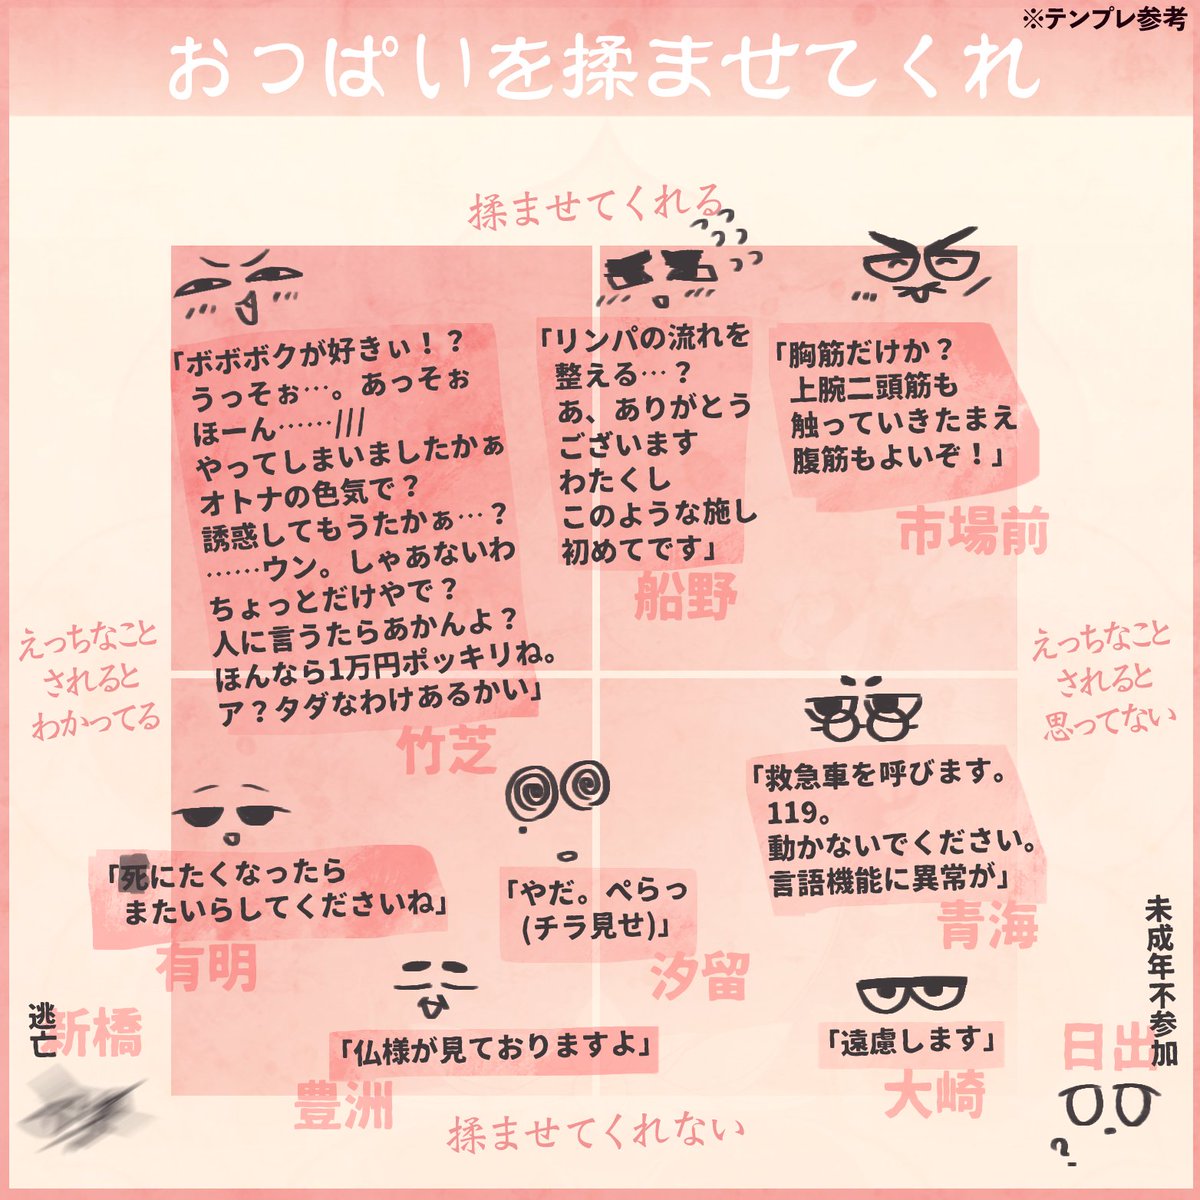 ※テンプレ参考
おっぱいを揉ませてくれ
揉ませてくれる
「ボボボクが好きぃ！？
うっそぉ…。あっそぉ
ほーん……///
やってしまいましたかぁ
オトナの色気で？
誘惑してもうたかぁ…？
……ウン。しゃあないわ
ちょっとだけやで？
人に言うたらあかんよ？
ほんなら1万円ポッキリね。
ア？タダなわけあるかい」
竹芝
「リンパの流れを
整える…？
あ、ありがとう
ございます
わたくし
このような施し
初めてです」
船野
「胸筋だけか？
上腕二頭筋も
触っていきたまえ
腹筋もよいぞ！」
市場前
えっちなこと
されると
わかってる
えっちなこと
されると
思ってない
「死にたくなったら
またいらしてくださいね」
有明
「やだ。ぺらっ
(チラ見せ)」
汐留
「救急車を呼びます。
119。
動かないでください。
言語機能に異常が」
青海
逃亡
新橋
「仏様が見ておりますよ」
豊洲
「遠慮します」
大崎
未成年不参加
日出
揉ませてくれない